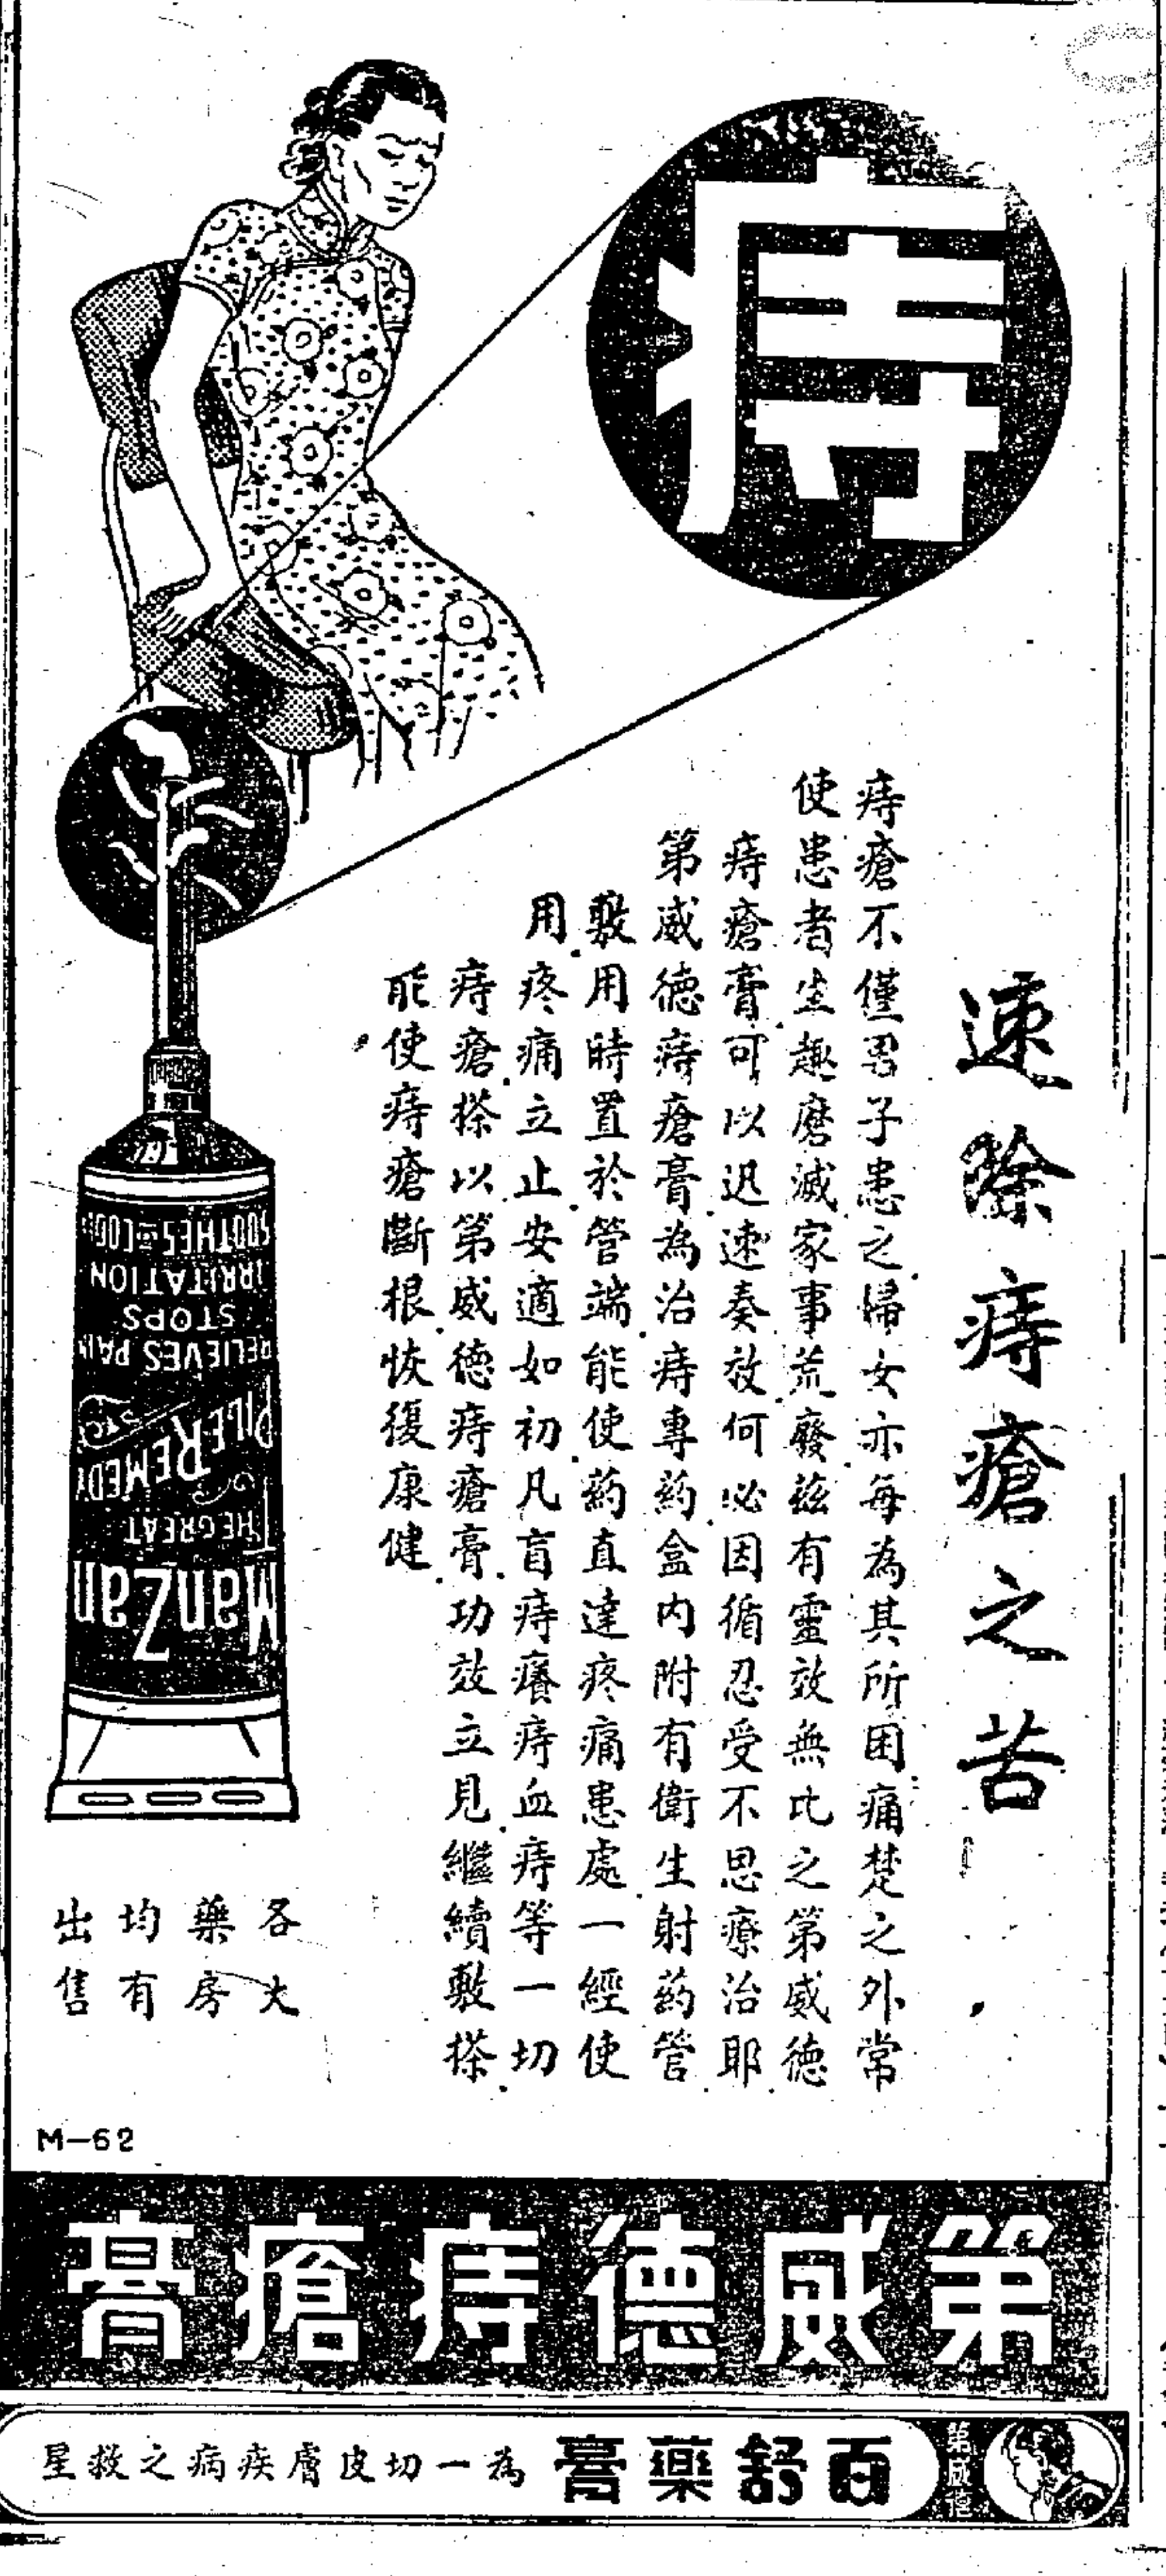 痔
速除痔瘡之苦
痔瘡不僅男子患之婦女亦每為其所困痛楚之外常
使患者生趣磨滅家事荒廢茲有靈效無比之第威德
痔瘡膏可以迅速奏效何必因循忍受不思療治耶
第威德痔瘡膏為治痔專药盒内附有衛生射药管
敷用時置於管端能使药直達疼痛患處一經使
用疼痛立止安適如初凡盲痔癢痔血痔等一切
痔瘡搽以第威德痔瘡膏功效立見繼續敷搽
能使痔瘡斷根恢復康健
ManZan
THE GREAT
PILE REMEDY
RELIEVES PAIN
STOPS
IRRITATION
各大
藥房
均有
出售
M-62
第威德痔瘡膏
第威德
百舒藥膏
為一切皮膚疾病之救星